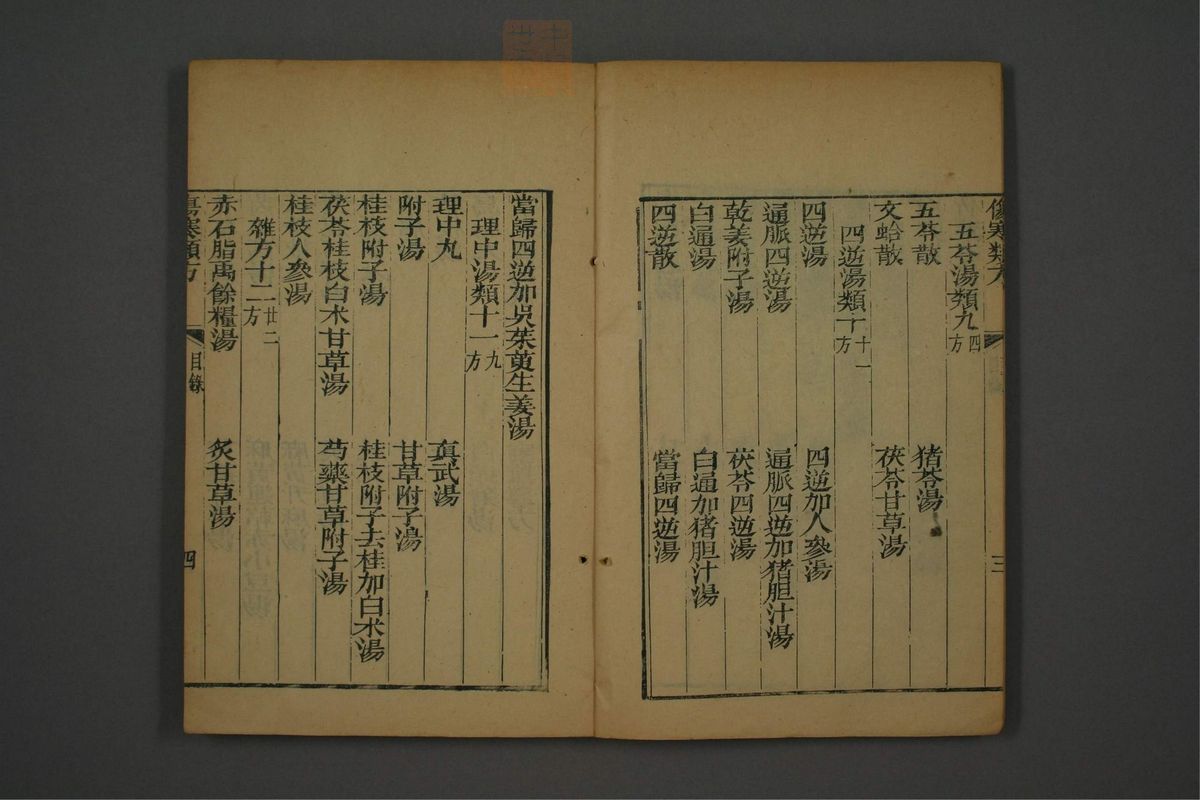 傷寒類方
五苓湯類九四方
五苓散 猪苓湯
文蛤散 茯苓甘草湯
四逆湯類十十一方
四逆湯 四逆加人參湯
通脈四逆湯 通脈四逆加猪胆汁湯
乾姜附子湯 茯苓四逆湯
白通湯 白通加猪胆汁湯
四逆散 當歸四逆湯
三
當歸四逆加吳茱萸生姜湯
理中湯類十一九方
理中丸 真武湯
附子湯 甘草附子湯
桂枝附子湯 桂枝附子去桂加白术湯
茯苓桂枝白术甘草湯 芍藥甘草附子湯
桂枝人參湯
雜方十二廿二方
赤石脂禹餘糧湯 炙甘草湯
傷寒類方 目錄 四